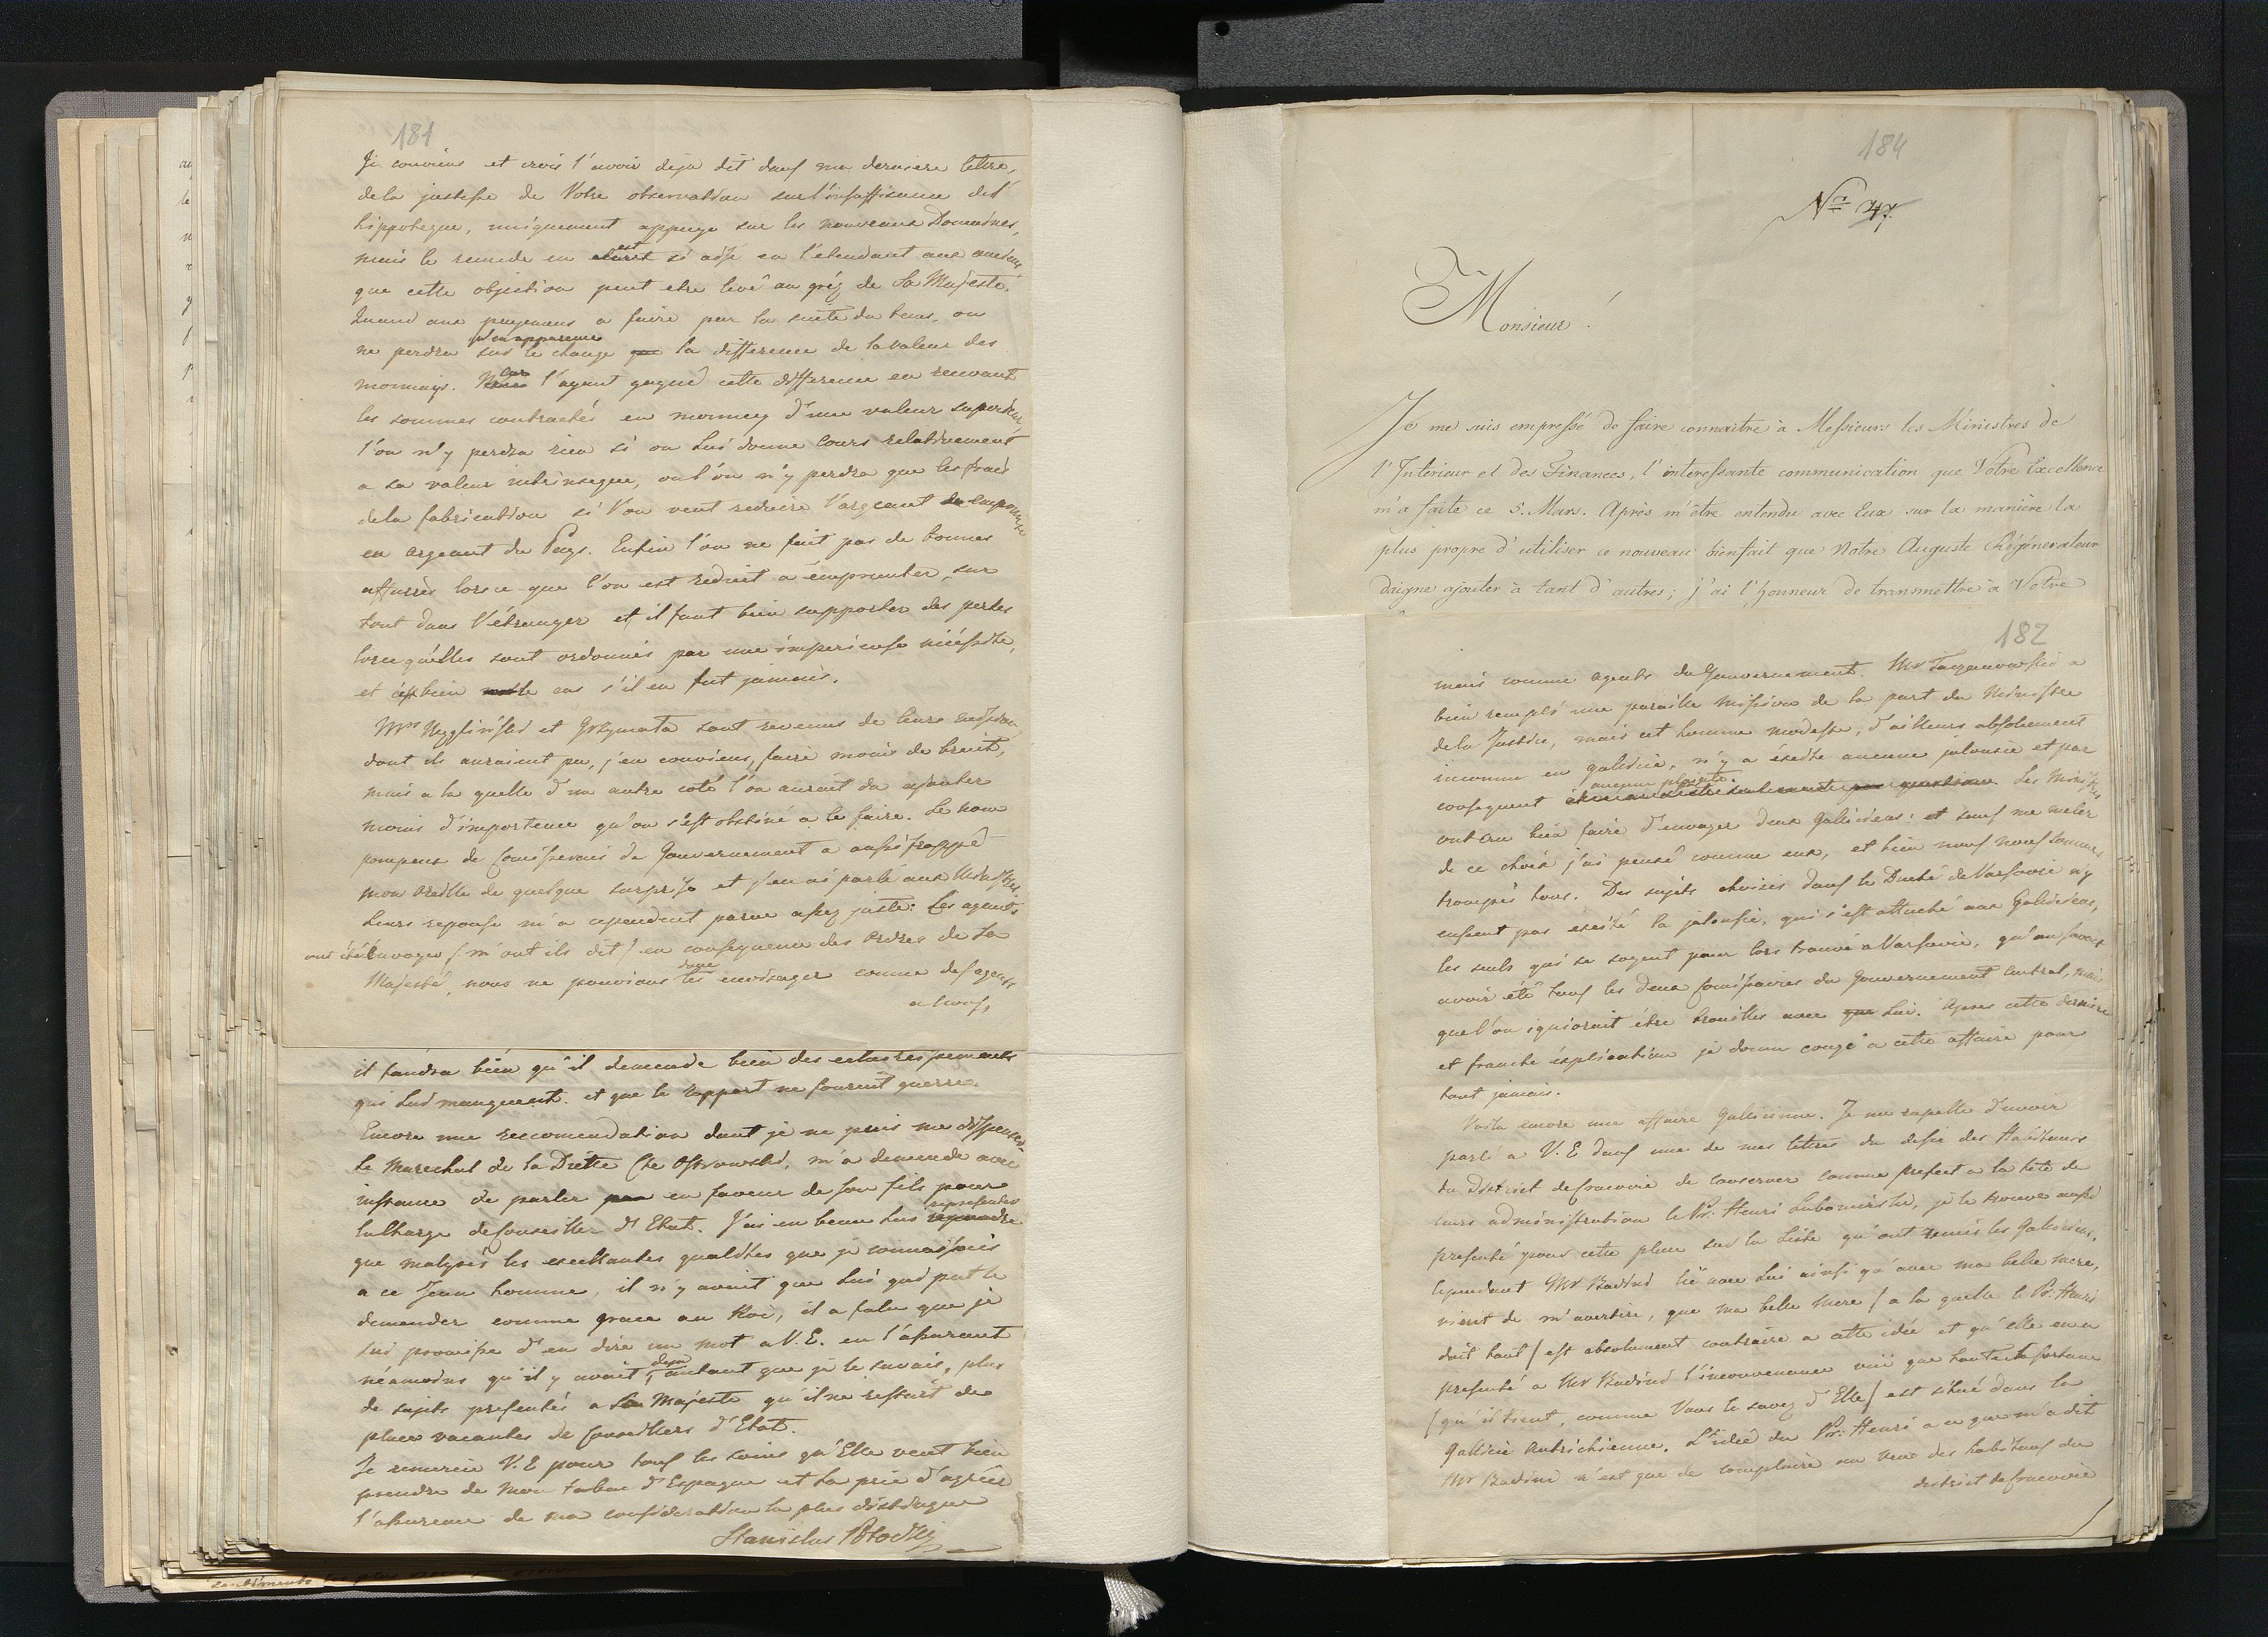 181
Je conviens et crois l'avoir deja dit dans ma derniere lettre,
dela justesse de Votre observation sur l'insuffisance del'
hippoteque, uniquement appuye sur les nouveaux Domaines,
mais le remede en est si aisé en l'etendant aux anciens
que cette objection peut etre levé au gré de Sa Majesté.
Quand aux payemens a faire par la suite du tems, on
ne perdra qu'en apparence sur le change la difference de la valeur des
monnays. Car l'ayant gagné cette difference en recevant
les sommes contractés en monnay d'une valeur superieur
l'on n'y perdra rien si on lui donne cours relativement
a sa valeur intrinseque, ou l'on n'y perdra que les frais
dela fabrication si l'on veut reduire l'argeant
en argeant du Pays. Enfin l'on ne fait pas de bonnes
affaires lorsce-que l'on est reduit a emprunter, sur
tout dans l'étranger et il faut bien supporter des pertes
lorsqu'elles sont ordonnés par une imperieuse nécéssité,
et c'est bien le cas s'il en fut jamais.
Mrs et Grzymala sont revenus de leurs mission
dont ils auraient pu, j'en conviens, faire moins de bruit,
mais a la quelle d'un autre coté l'on aurait du ajouter
moins d'importence qu'on s'est obstiné a le faire. Le nom
pompeux de Comissaires du Gouvernement a aussi frappé
mon oreille de quelque surprise et j'en ai parlé aux Ministres.
Leurs reponse m'a cependent parue assez juste: Les agents
ont été envoyés (m'ont ils dit) en consequence des ordres de Sa
Majesté, nous ne pouvions donc les envisager comme des agents
a nous,
il faudra bien qu'il demende bien des eclaircissements
qui lui manquent et que le rapport ne fournit guerre.
Encore une reccomendation dont je ne puis me dispenser
Le Marechal de la Diette Cte Ostrowski, m'a demendé avec
instance de parler en faveur de son fils pour
la charge de Conseiller d'Etat. J'ai eu beau lui representer
que malgrés les excellantes qualités que je connaissais
a ce Jeun homme, il n'y avait que lui qui put le
demender comme grace au Roi, il a falu que je
lui promisse d'en dire un mot a V. E. en l'assurant
néamoins qu'il y avait deja, autant que je le savais, plus
de sujets presentés a Sa Majesté qu'il ne restait de
places vacantes de Conseillers d'Etat.
Je remercie V. E pour tous les soins qu'Elle veut bien
prendre de mon tabac d'Espagne et la prie d'agréer
l'assurence de ma consideration la plus distinguée
Stanislas Potocki
184
No 47.
Monsieur!
Je me suis empressé de faire connaitre à Messieurs les Ministres de
l'Interieur et des Finances, l'interessante communication que Votre Excellence
m'a faite ce 5. Mars. Après m'être entendu avec Eux sur la manière la
plus propre d'utiliser ce nouveau bienfait que Notre Auguste Régénerateur
daigne ajouter à tant d'autres; j'ai l'honneur de transmettre à Votre
182
mais comme agents du Gouvernement. Mr a
bien rempli une pareille mission de la part du Ministre
dela Justice, mais cet homme modeste, d'ailleurs absolument
inconnu en galicie, n'y a éxcité aucune jalousie et par
consequent aucune plainte. Les Ministres
ont cru bien faire d'envoyer deux Galliciens: et sans me meler
de ce choix j'ai pensé comme eux, et bien nous nous sommes
trompés tous. Des sujets choisis dans le Duché de Varsovie n'y
eussent pas excité la jalousie, qui s'est attaché aux Galiciens,
les seuls qui se soyent pour lors trouvé a Varsovie, qu'on savait
avoir été tous les deux Comissaires du Gouvernement Central, mais
que l'on ignorait être brouillés avec lui. Apres cette derniere
et franche explication je donne congé a cette affaire pour
tout jamais.
Voila encore une affaire Gallicienne. Je me rapelle d'avoir
parlé a V. E dans une de mes lettre du desir des Habitans
du District de Cracovie de conserver comme prefect a la tete de
leurs administration le Pr: Henri Lubomirski, je le trouve aussi
presenté pour cette place sur la Liste qu'ont remis les Galiciens,
cependent Mr Badeni lié avec lui ainsi qu'avec ma belle mere,
vient de m'avertire, que ma belle mere (a la quelle le Pr: Henri
doit tout) est absolument contraire a cette idée et qu'elle en a
presenté a Mr Badeni l'inconvenance vuë que toute la fortune
(qu'il tient, comme Vous le savez d'Elle) est situé dans la
Gallicie Autrichienne. L'idée du Pr: Henri a ce que m'a dit
Mr Badeni n'est que de complaire au vœu des habitans du
district de Cracovie